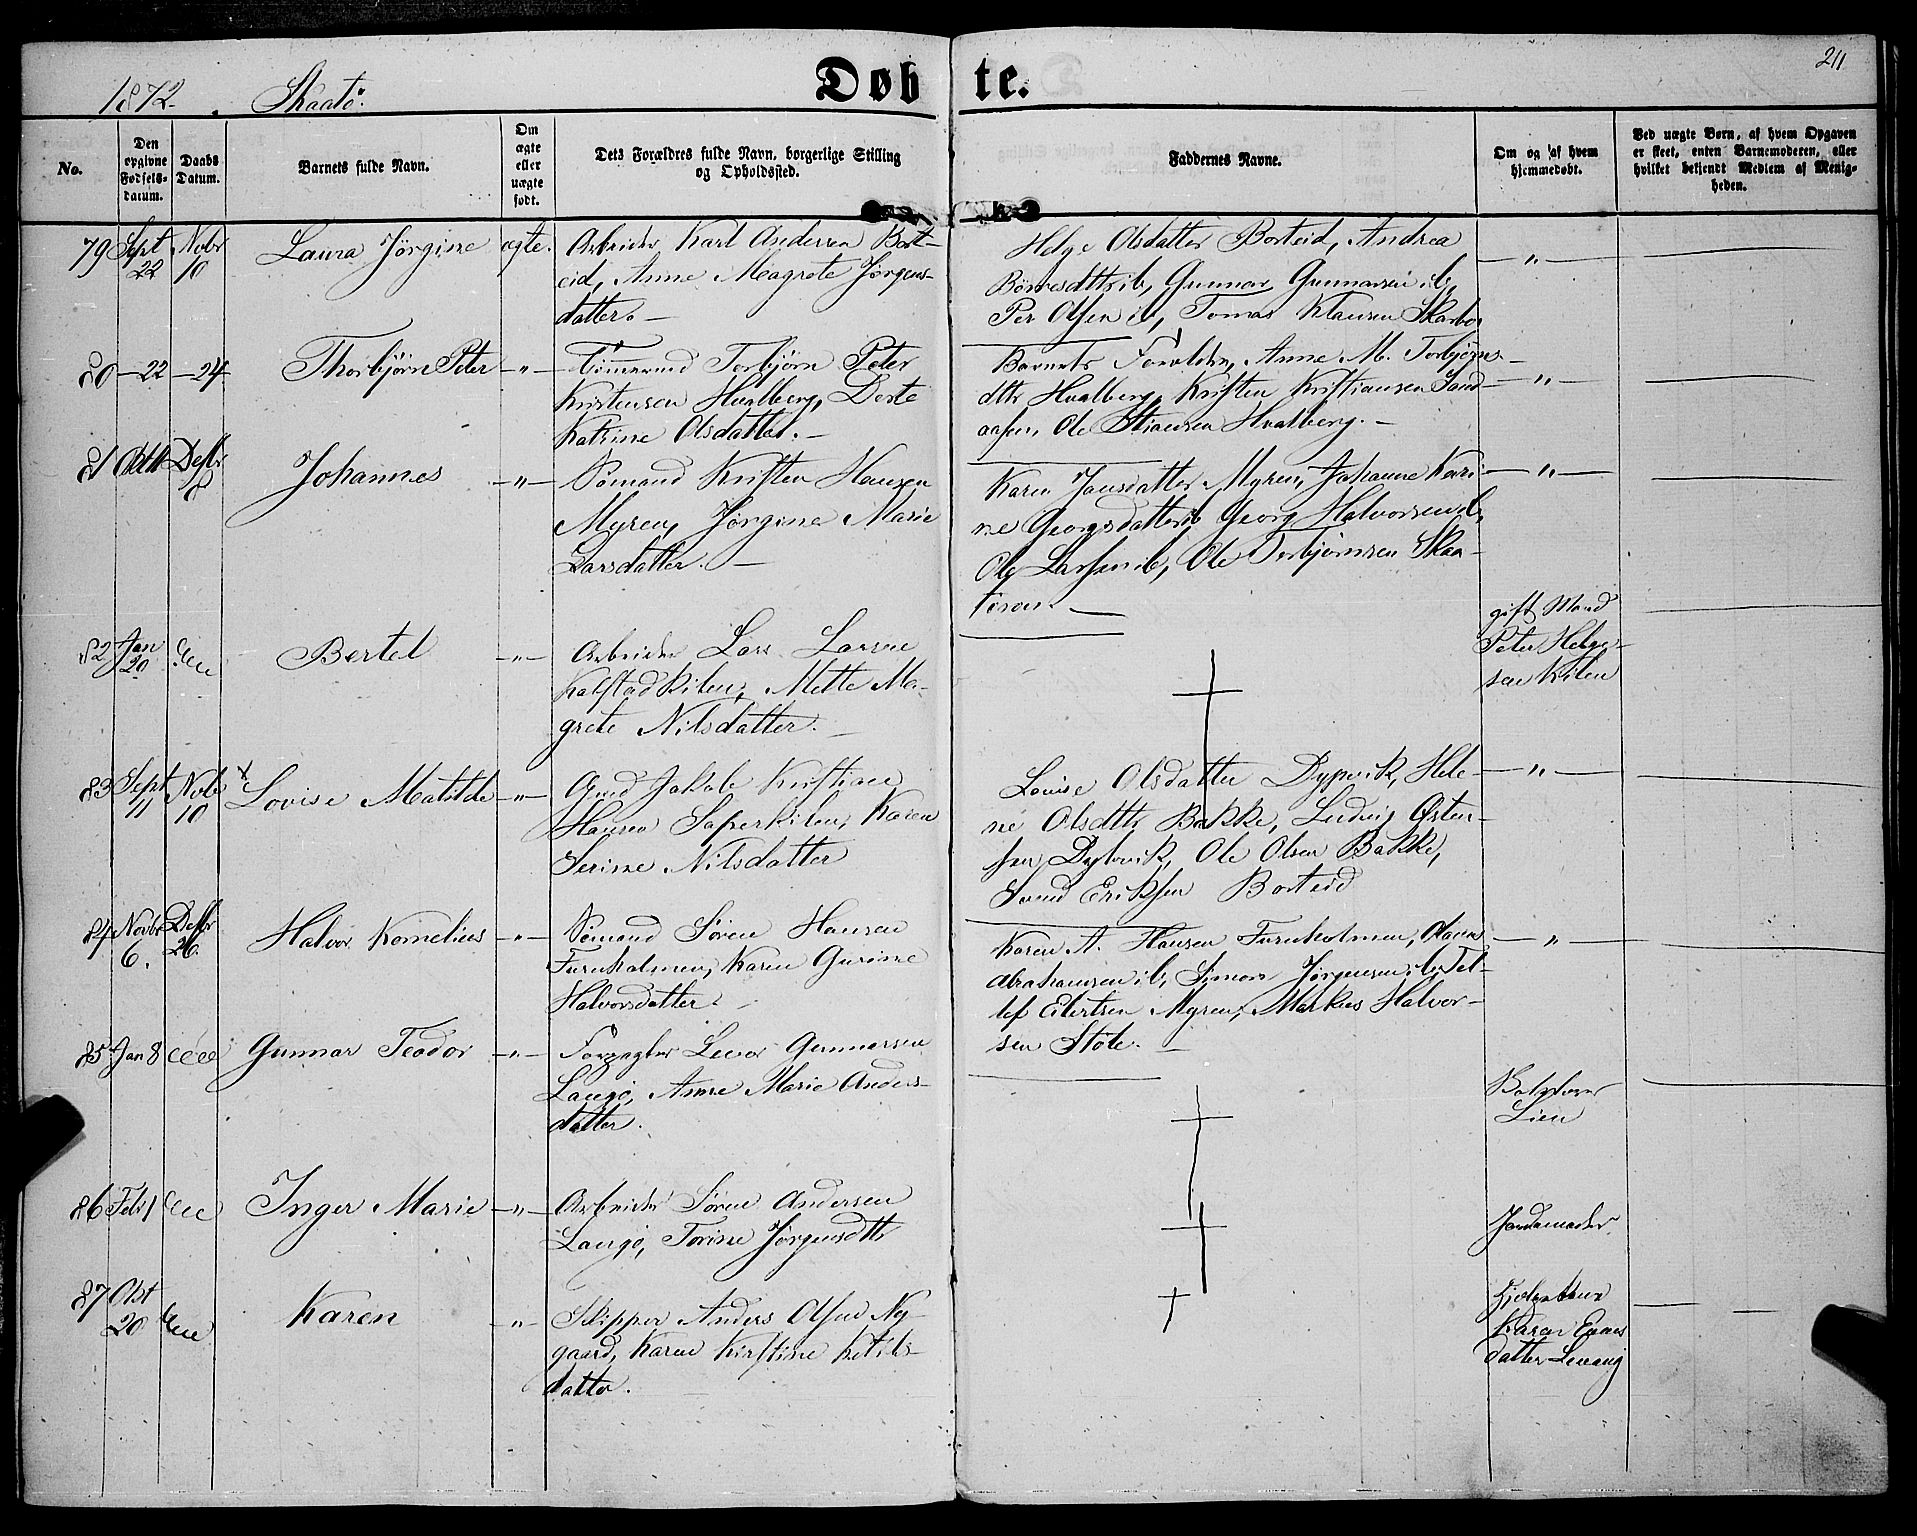 1872. Skaatø.
Døbte.
211
No.
Den opgivne Fødsels-datum.
Daabs Datum.
Barnets fulde Navn.
Om ægte eller uægte født.
Dets Forældres fulde Navn, borgerlige Stilling og Opholdssted.
Faddernes Navne.
Om og af hvem hjemmedøbt.
Ved uægte Børn, af hvem Opgaven er skeet, enten Barnemoderen, eller hvilket bekjendt Medlem af Menigheden.
79 Sept 22 Nobr 10 Laura Jørgine ægte.
Arbeider Karl Andersen Bort-
eid, Anne Magrete Jørgens-
datter. —
Helge Olsdatter Borteid, Andrea
ib, Gunnar Gunnarsen ib,
Per Olsen ib, Tomas Klausen
— " —
80 — 22 — 24 Thorbjørn Peter — " —
Tømmermd Torbjørn Peter
Kristensen Hvalberg, Dorte
Katrine Olsdatter. —
Barnets Forældre, Anne M. Torbjørns-
dtr Hvalberg, Kristen Kristiansen
Ole Hvalberg. —
— " —
81 Decbr 8 Johannes — " —
Sømand Kristen Hansen
Myren, Jørgine Marie
Larsdatter. —
Karen Jensdatter Myren, Johanne Kari-
ne Georgsdatter ib, Georg Halvorsen ib,
Ole Larsen ib, Ole Torbjørnsen Skaa-
— " —
82 Jan 20 Bertel — " —
Arbeider Lars Larsen
Kilen, Mette Ma-
grete Nilsdatter. —
gift Mand
Peter Helge-
sen Kilen
83 Sept 11 Nobr 10 Lovise Matilde — " —
Gmd Jakob Kristian
Hansen Kilen, Karen
Serine Nilsdatter
Louise Olsdatter Dypvik, Hele-
ne Olsdtr Bakke, Ludvig Østen-
sen Dypvik, Ole Olsen Bakke,
Svend Eriksen Borteid
— " —
84 Novbr 6. Decbr 26 Halvor Kornelius — " —
Sømand Søren Hansen
Furuholmen, Karen Gurine
Halvorsdatter. —
Karen A. Hansen Furuholmen,
Abrahamsen ib, Simon Jørgensen ib, Tel-
lef Eilertsen Myren, Markus Halvor-
sen Støle. —
— " —
85 Jan 8 Gunnar Teodor — " —
Forpagter Gunnarsen
Langø, Anne Marie Anders-
datter.
Lien
86 Febr 1 Inger Marie — " —
Arbeider Søren Andersen
Langø, Torine Jørgensdtr
Jordemoder
87 Okt 20 Karen — " —
Skipper Anders Olsen Ny-
gaard, Karen Kirstine Ketils-
datter.
Karen
datter Levang